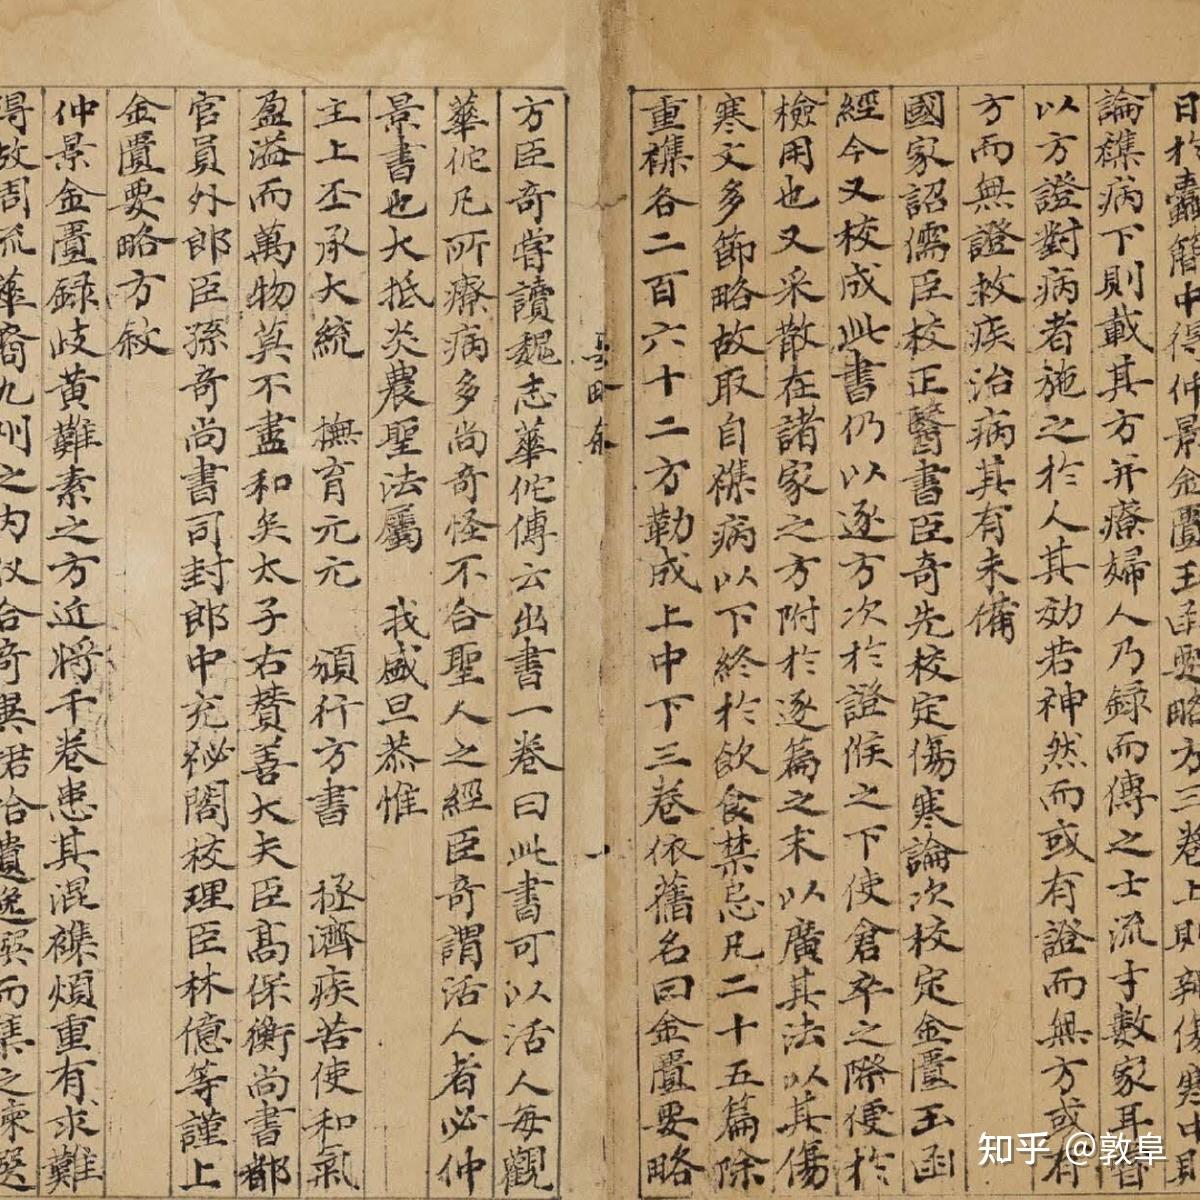 日於蠹簡中得仲景金匱玉函要略方三卷上則辨傷寒中則
論襍病下則載其方并療婦人乃録而傳之士流才數家耳嘗
以方證對病者施之於人其効若神然而或有證而無方或有
方而無證救疾治病其有未備
國家詔儒臣校正醫書臣奇先校定傷寒論次校定金匱玉函
經今又校成此書仍以逐方次於證候之下使倉卒之際便於
檢用也又采散在諸家之方附於逐篇之末以廣其法以其傷
寒文多節略故取自襍病以下終於飲食禁忌凡二十五篇除
重襍各二百六十二方勒成上中下三卷依舊名曰金匱要略
方臣奇嘗讀魏志華佗傳云出書一卷曰此書可以活人每觀
華佗凡所療病多尚奇怪不合聖人之經臣奇謂活人者必仲
景書也大抵炎農聖法屬 我盛旦恭惟
主上丕承大統 撫育元元 頒行方書 拯濟疾苦使和氣
盈溢而萬物莫不盡和矣太子右贊善大夫臣高保衡尚書都
官員外郎臣孫奇尚書司封郎中充祕閣校理臣林億等謹上
金匱要略方敘
仲景金匱録岐黃難素之方近將千卷患其混襍煩重有求難
得故周流華裔九州之内收合奇異捃拾遺逸揀而集之揀選
知乎 @敦阜